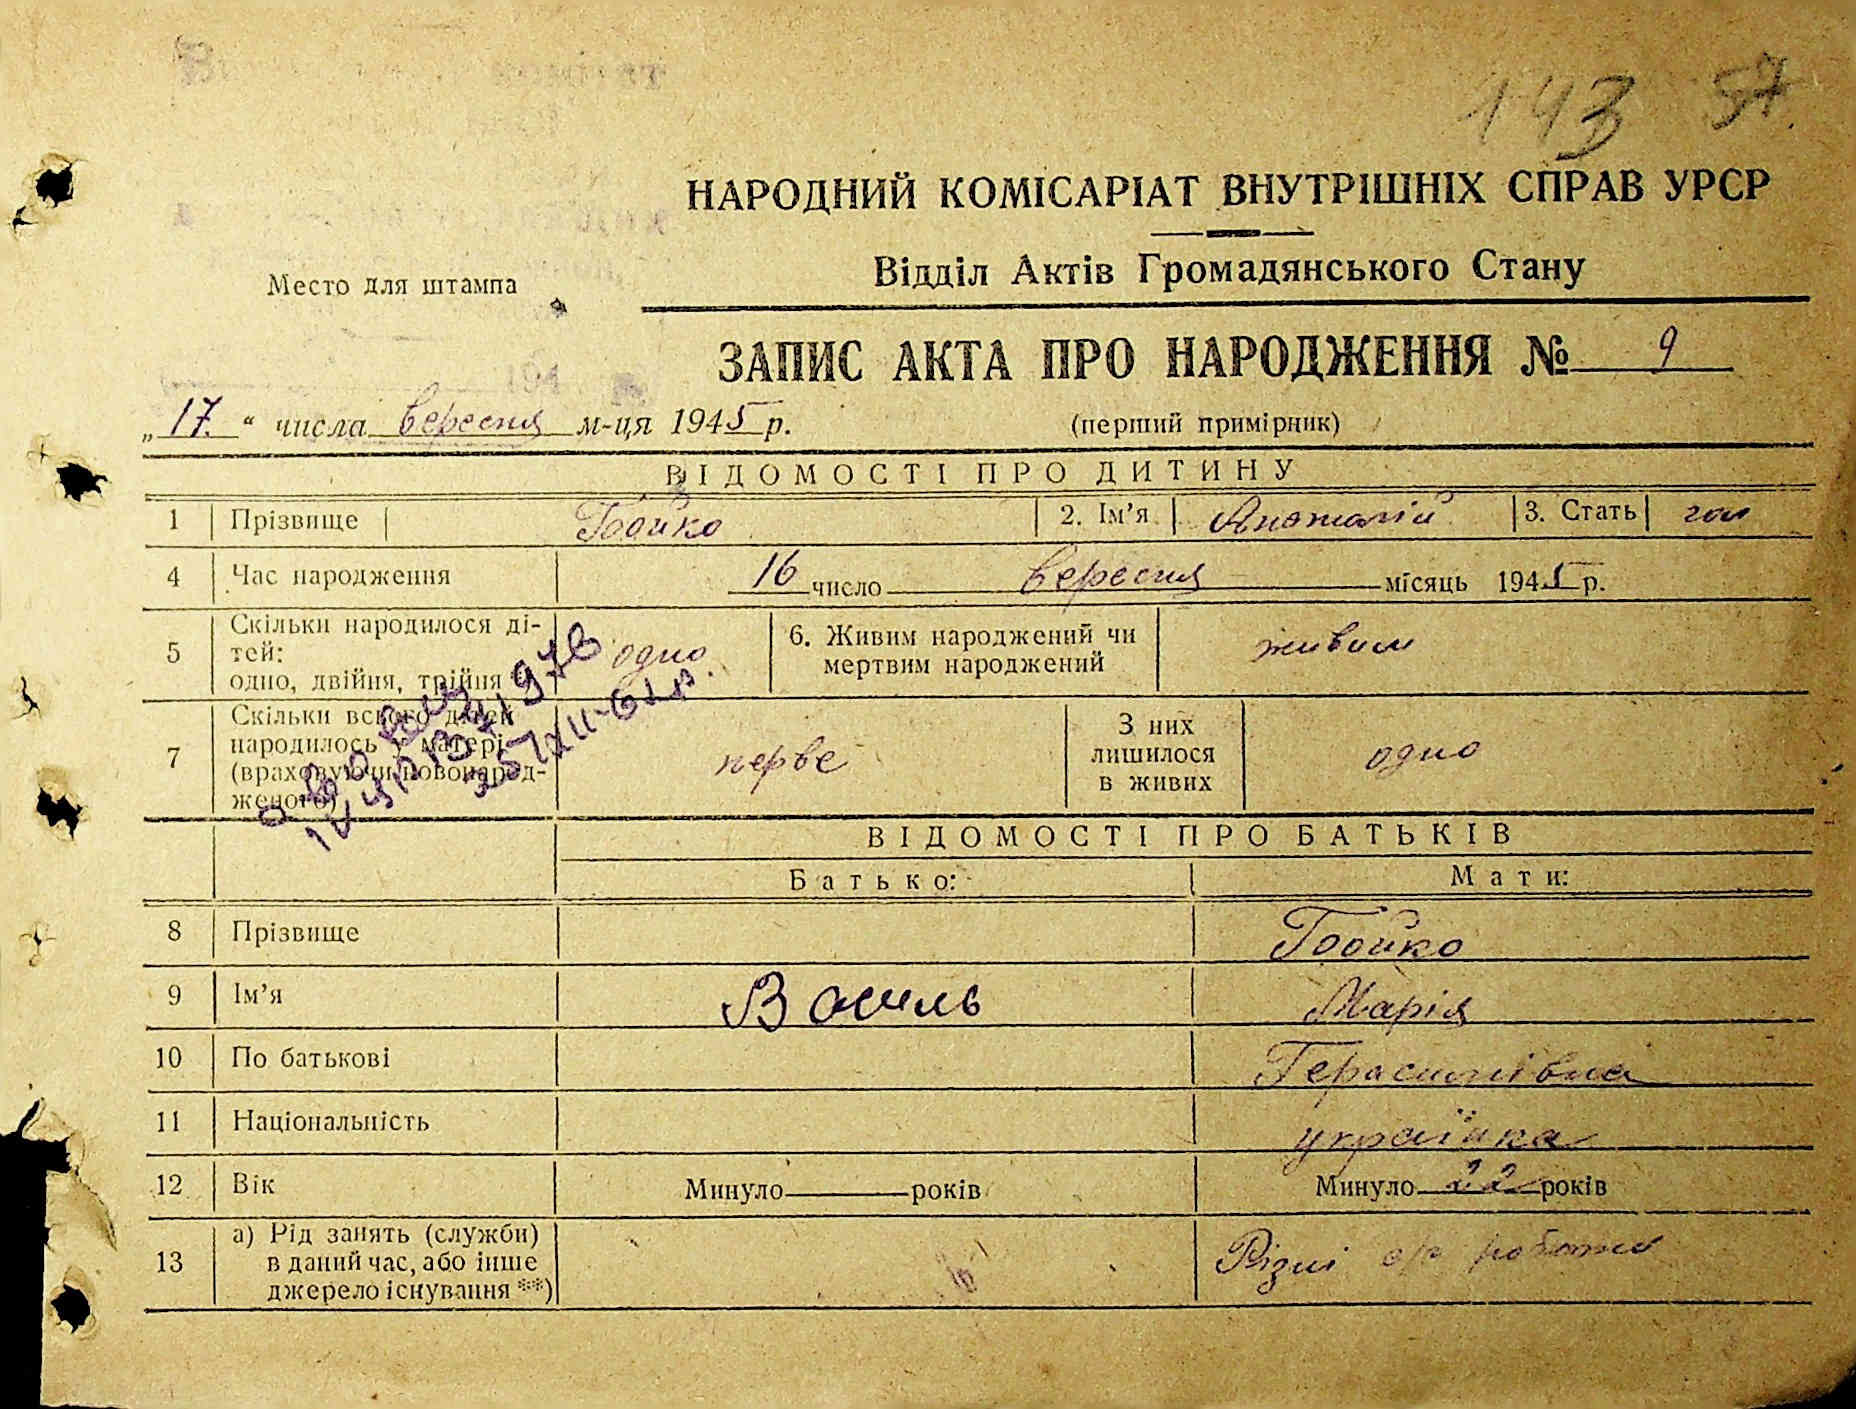 143 57
НАРОДНИЙ КОМІСАРІАТ ВНУТРІШНІХ СПРАВ УРСР
Відділ Актів Громадянського Стану
Место для штампа
ЗАПИС АКТА ПРО НАРОДЖЕННЯ № 9
„17." числа вересня м-ця 1945 р. (перший примірник)
ВІДОМОСТІ ПРО ДИТИНУ
1 Прізвище Бойко 2. Ім'я Анатолій 3. Стать чол
4 Час народження 16 число вересня місяць 1945 р.
5 Скільки народилося ді-
тей:
одно, двійня, трійня одно 6. Живим народжений чи
мертвим народжений живим
7 Скільки всього дітей
народилось у матері
(враховуючи новонарод-
женого) перве З них
лишилося
в живих одно
ВІДОМОСТІ ПРО БАТЬКІВ
Батько: Мати:
8 Прізвище Бойко
9 Ім'я Василь Марія
10 По батькові Герасимівна
11 Національність українка
12 Вік Минуло років Минуло 22 років
13 а) Рід занять (служби)
в даний час, або інше
джерело існування **) Різні с/г роботи